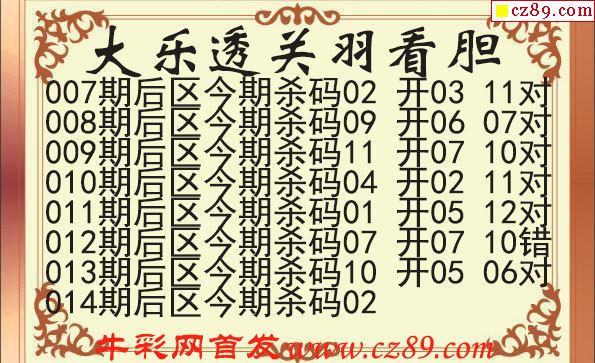 cz89.com
大乐透关羽看胆
007期后区今期杀码02 开03 11对
008期后区今期杀码09 开06 07对
009期后区今期杀码11 开07 10对
010期后区今期杀码04 开02 11对
011期后区今期杀码01 开05 12对
012期后区今期杀码07 开07 10错
013期后区今期杀码10 开05 06对
014期后区今期杀码02
牛彩网首发www.cz89.com